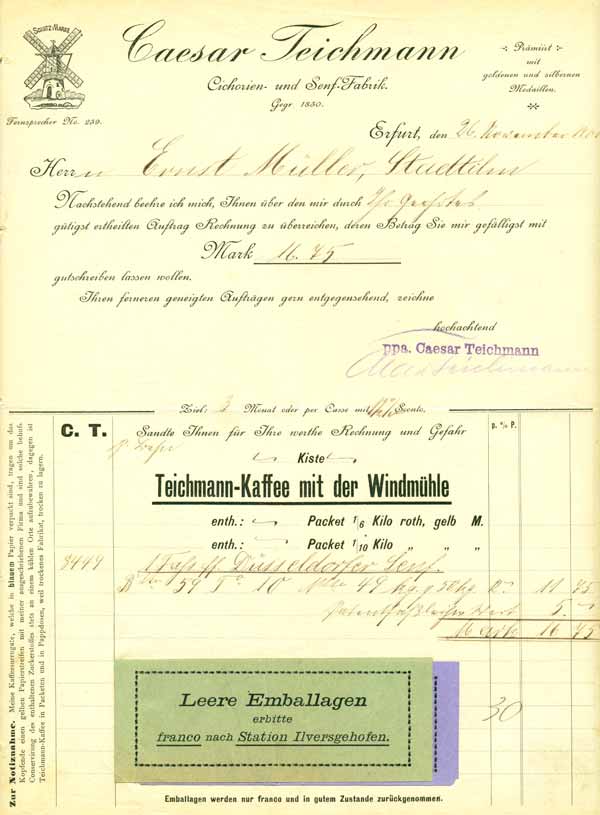 SCHUTZ-MARKE
Fernsprecher No. 239.
Caesar Teichmann
Cichorien- und Senf-Fabrik.
Gegr 1850.
Prämiirt
mit
goldenen und silbernen
Medaillen.
Erfurt, den 26. November
Herrn Ernst Müller, Stadtilm
Nachstehend beehre ich mich, Ihnen über den mir durch
gütigst ertheilten Auftrag Rechnung zu überreichen, deren Betrag Sie mir gefälligst mit
Mark 16.75
gutschreiben lassen wollen.
Ihren ferneren geneigten Aufträgen gern entgegensehend, zeichne
hochachtend
ppa. Caesar Teichmann
Teichmann
Ziel: 3 Monat oder per Casse mit Sconto.
C. T.
Sandte Ihnen für Ihre werthe Rechnung und Gefahr
p. % P.
Kiste
Teichmann-Kaffee mit der Windmühle
enth.: Packet 1/6 Kilo roth, gelb M.
enth.: Packet 1/10 Kilo „ „ „
8449 1 Faß ff Düsseldorfer Senf.
59 T° 10 49 kg 11 75
5.
Mark 16 75
30
Leere Emballagen
erbitte
franco nach Station Ilversgehofen.
Emballagen werden nur franco und in gutem Zustande zurückgenommen.
Zur Notiznahme. Meine Kaffeesurrogate, welche in blauem Papier verpackt sind, tragen um das
Kopfende einen gelben Papierstreifen mit meiner ausgeschriebenen Firma und sind solche behufs
Conservirung des enthaltenen Zuckerstoffes stets an einem kühlen Orte aufzubewahren, dagegen ist
Teichmann-Kaffee in Packeten und in Pappdosen, weil trockenes Fabrikat, trocken zu lagern.